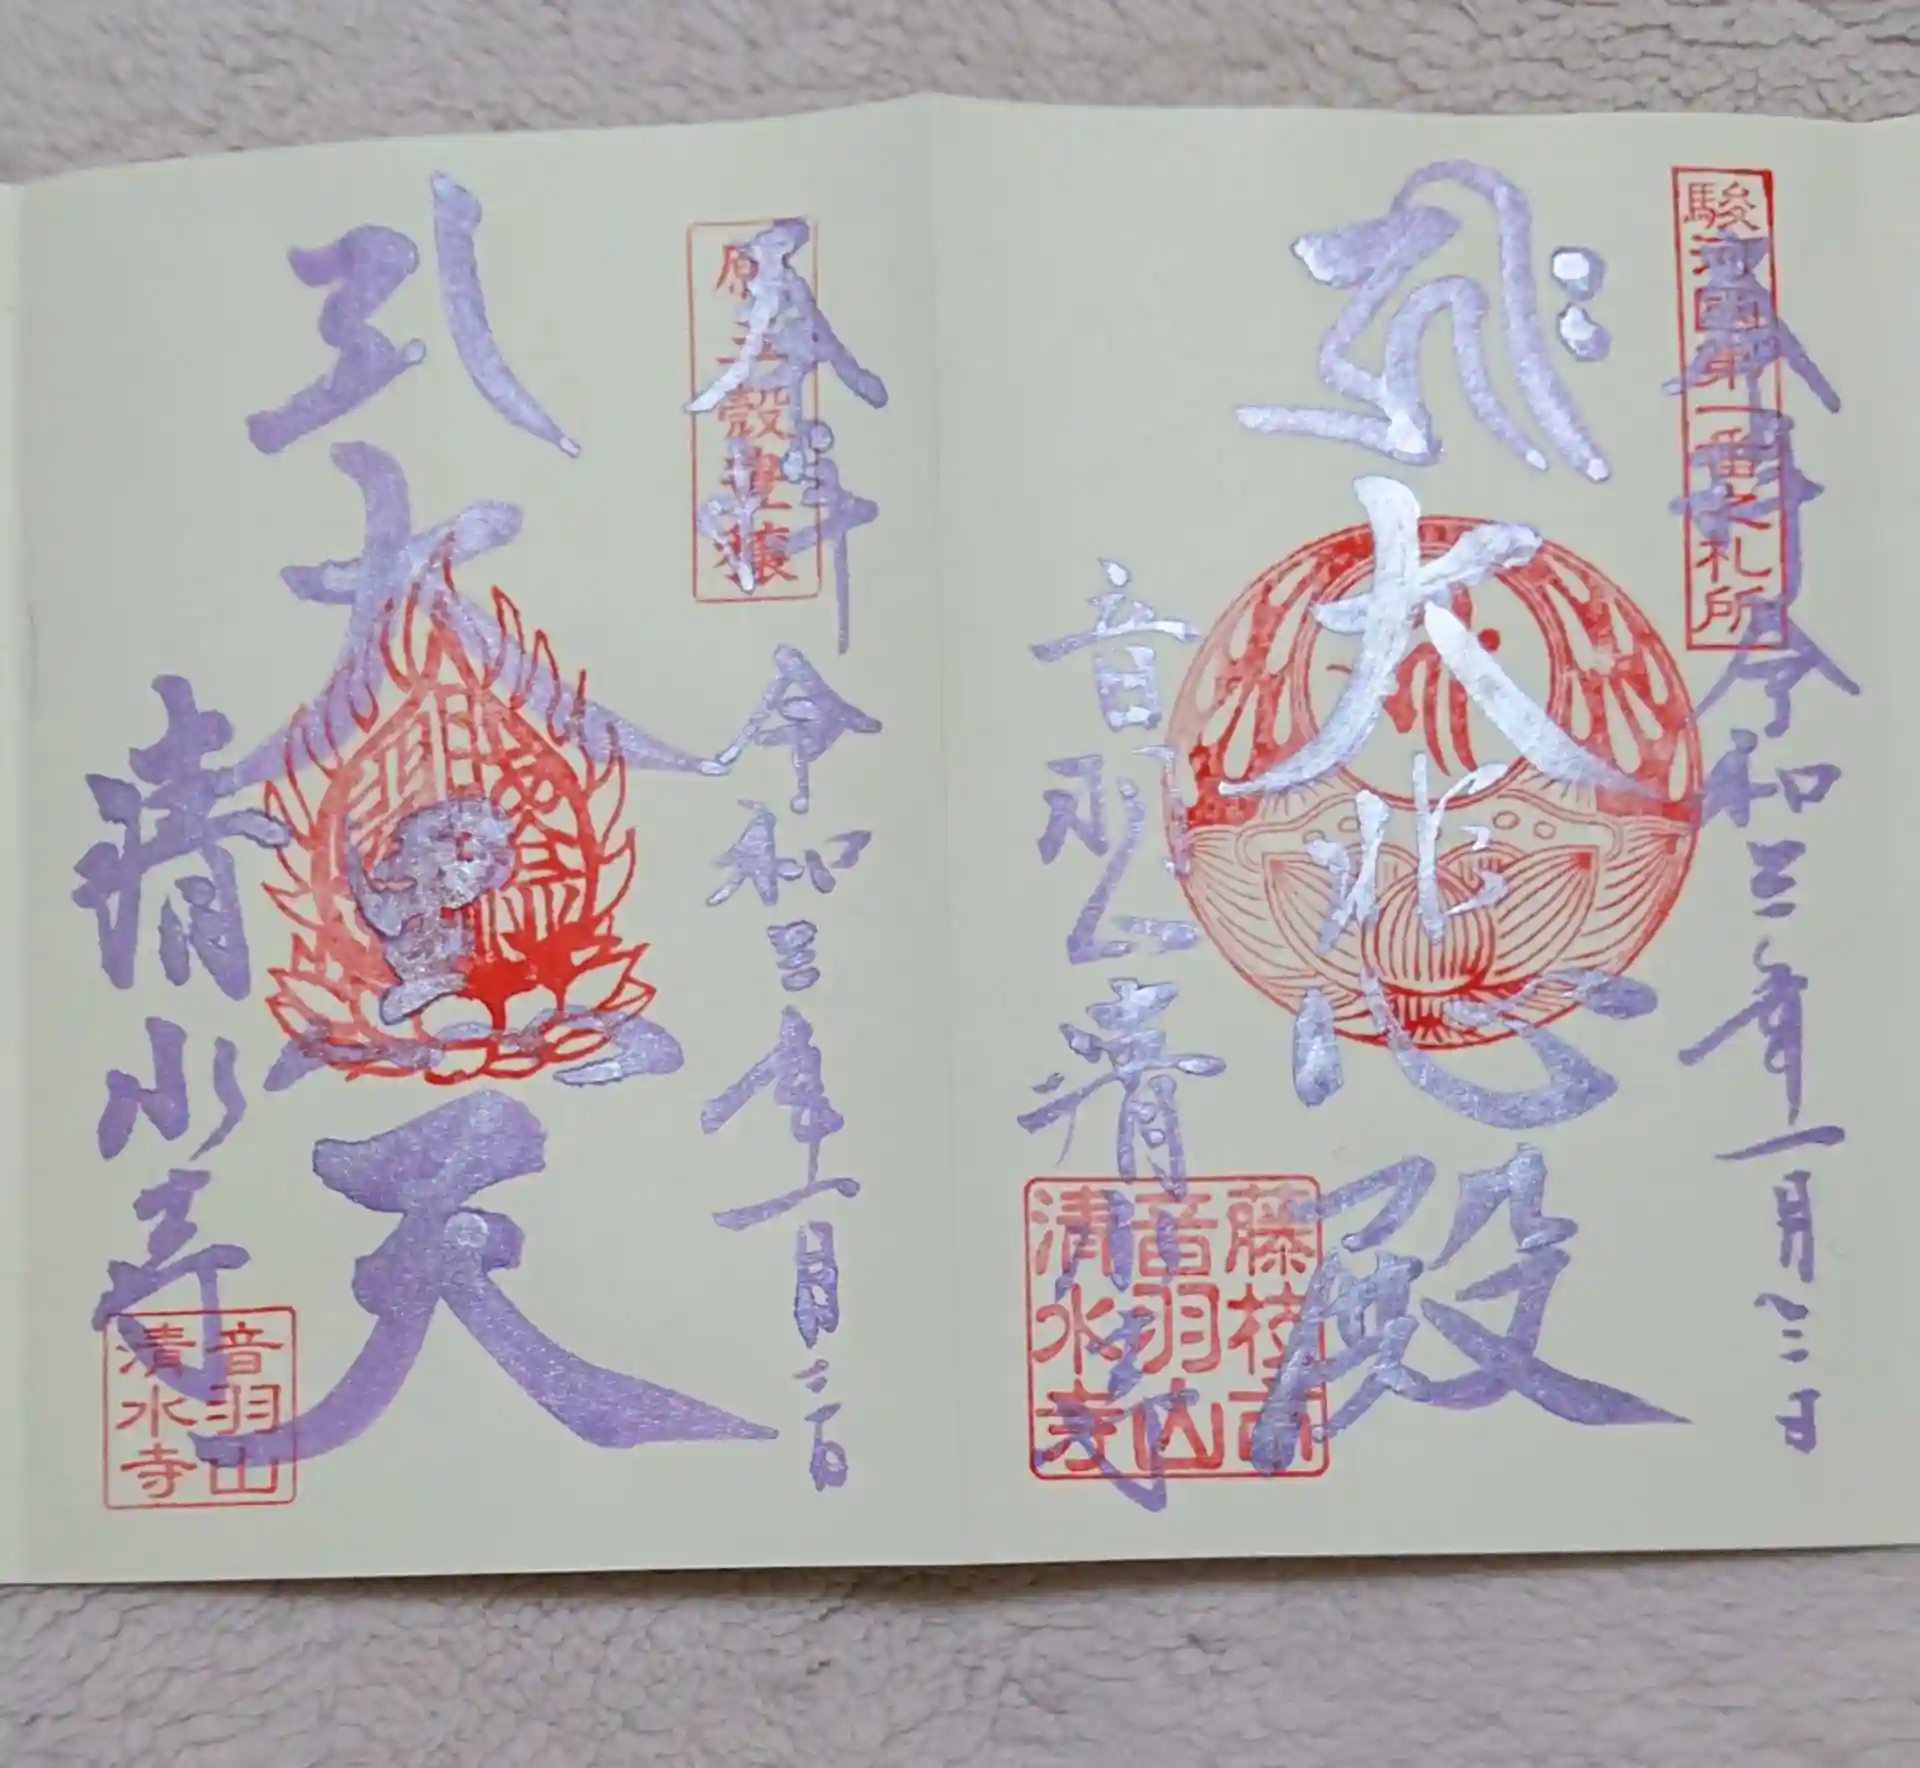 駿河国第一番之札所
奉拝 令和三年一月三日
大悲心殿
音羽山 清水寺
藤枝市
音羽山
清水寺
五穀豊穣
奉拝 令和三年一月三日
大黒天
清水寺
音羽山
清水寺